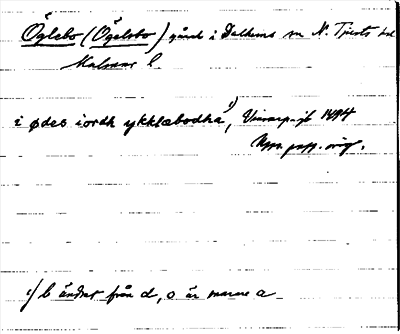 Öglebo (Ögelsbo) gård i Dalhems sn N. Tjusts hd
Kalmar l
i ødes iordh ykklæbodha 1), Vinsarp.jb 1494
Upps. papp. orig.
1) b ändrat från d, o är snarare a